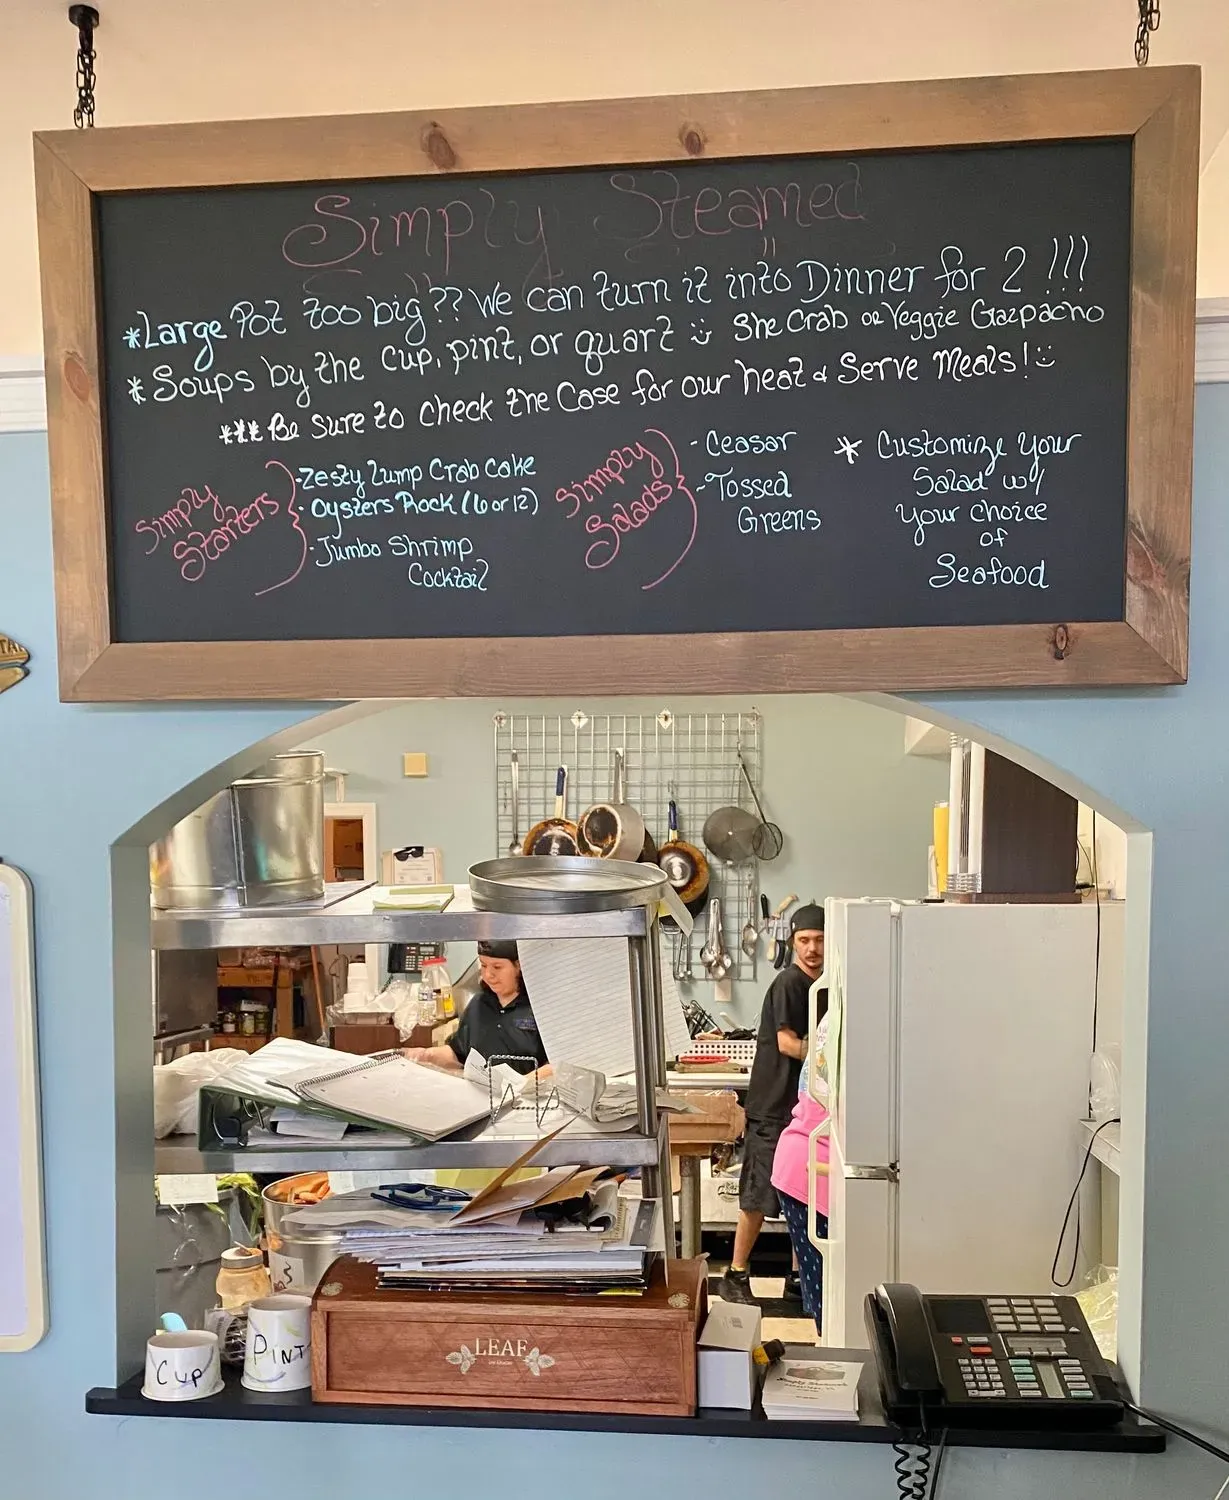 Simply Steamed
*Large Pot too big?? We can turn it into Dinner for 2 !!!
*Soups by the cup, pint, or quart She Crab or Veggie Gazpacho
*** Be sure to check the Case for our heat & Serve Meals!
Simply
Starters
-Zesty Lump Crab Cake
-Oysters Rock (6 or 12)
-Jumbo Shrimp
Cocktail
Simply
Salads
-Ceasar
-Tossed
Greens
* Customize your
Salad w/
your choice
of
Seafood
Cup
PINT
LEAF
Simply Steamed